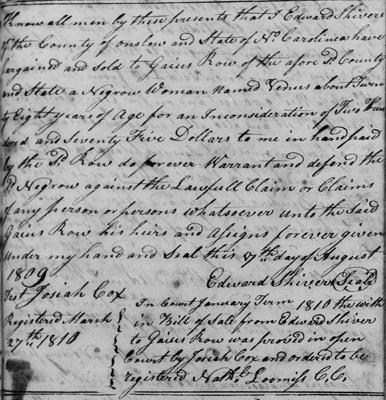 Know all men by these presents that I Edward Shivers
of the County of onslow and State of No Carolinea have
bargained and sold to Gaius Row of the afore sd County
and State a Negrow Woman named Venus about Twen
ty Eight years of Age for an Inconsideration of Two Hun
dred and Seventy Five Dollars to me in hand paid
by the sd Row do forever Warrant and defend the
sd Negrow against the Lawfull Claim or Claims
of any person or persons whatsoever unto the said
Gaius Row his heirs and asigns forever given
under my hand and Seal this 7th day of August
1809
Edward Shivers Seald
Test Josiah Cox
Registered March
27th 1810
In Court January Term 1810 the with
in Bill of Sale from Edward Shiver
to Gaius Row was proved in open
Court by Josiah Cox and ordered to be
registered Nathl Loomiss C.C.